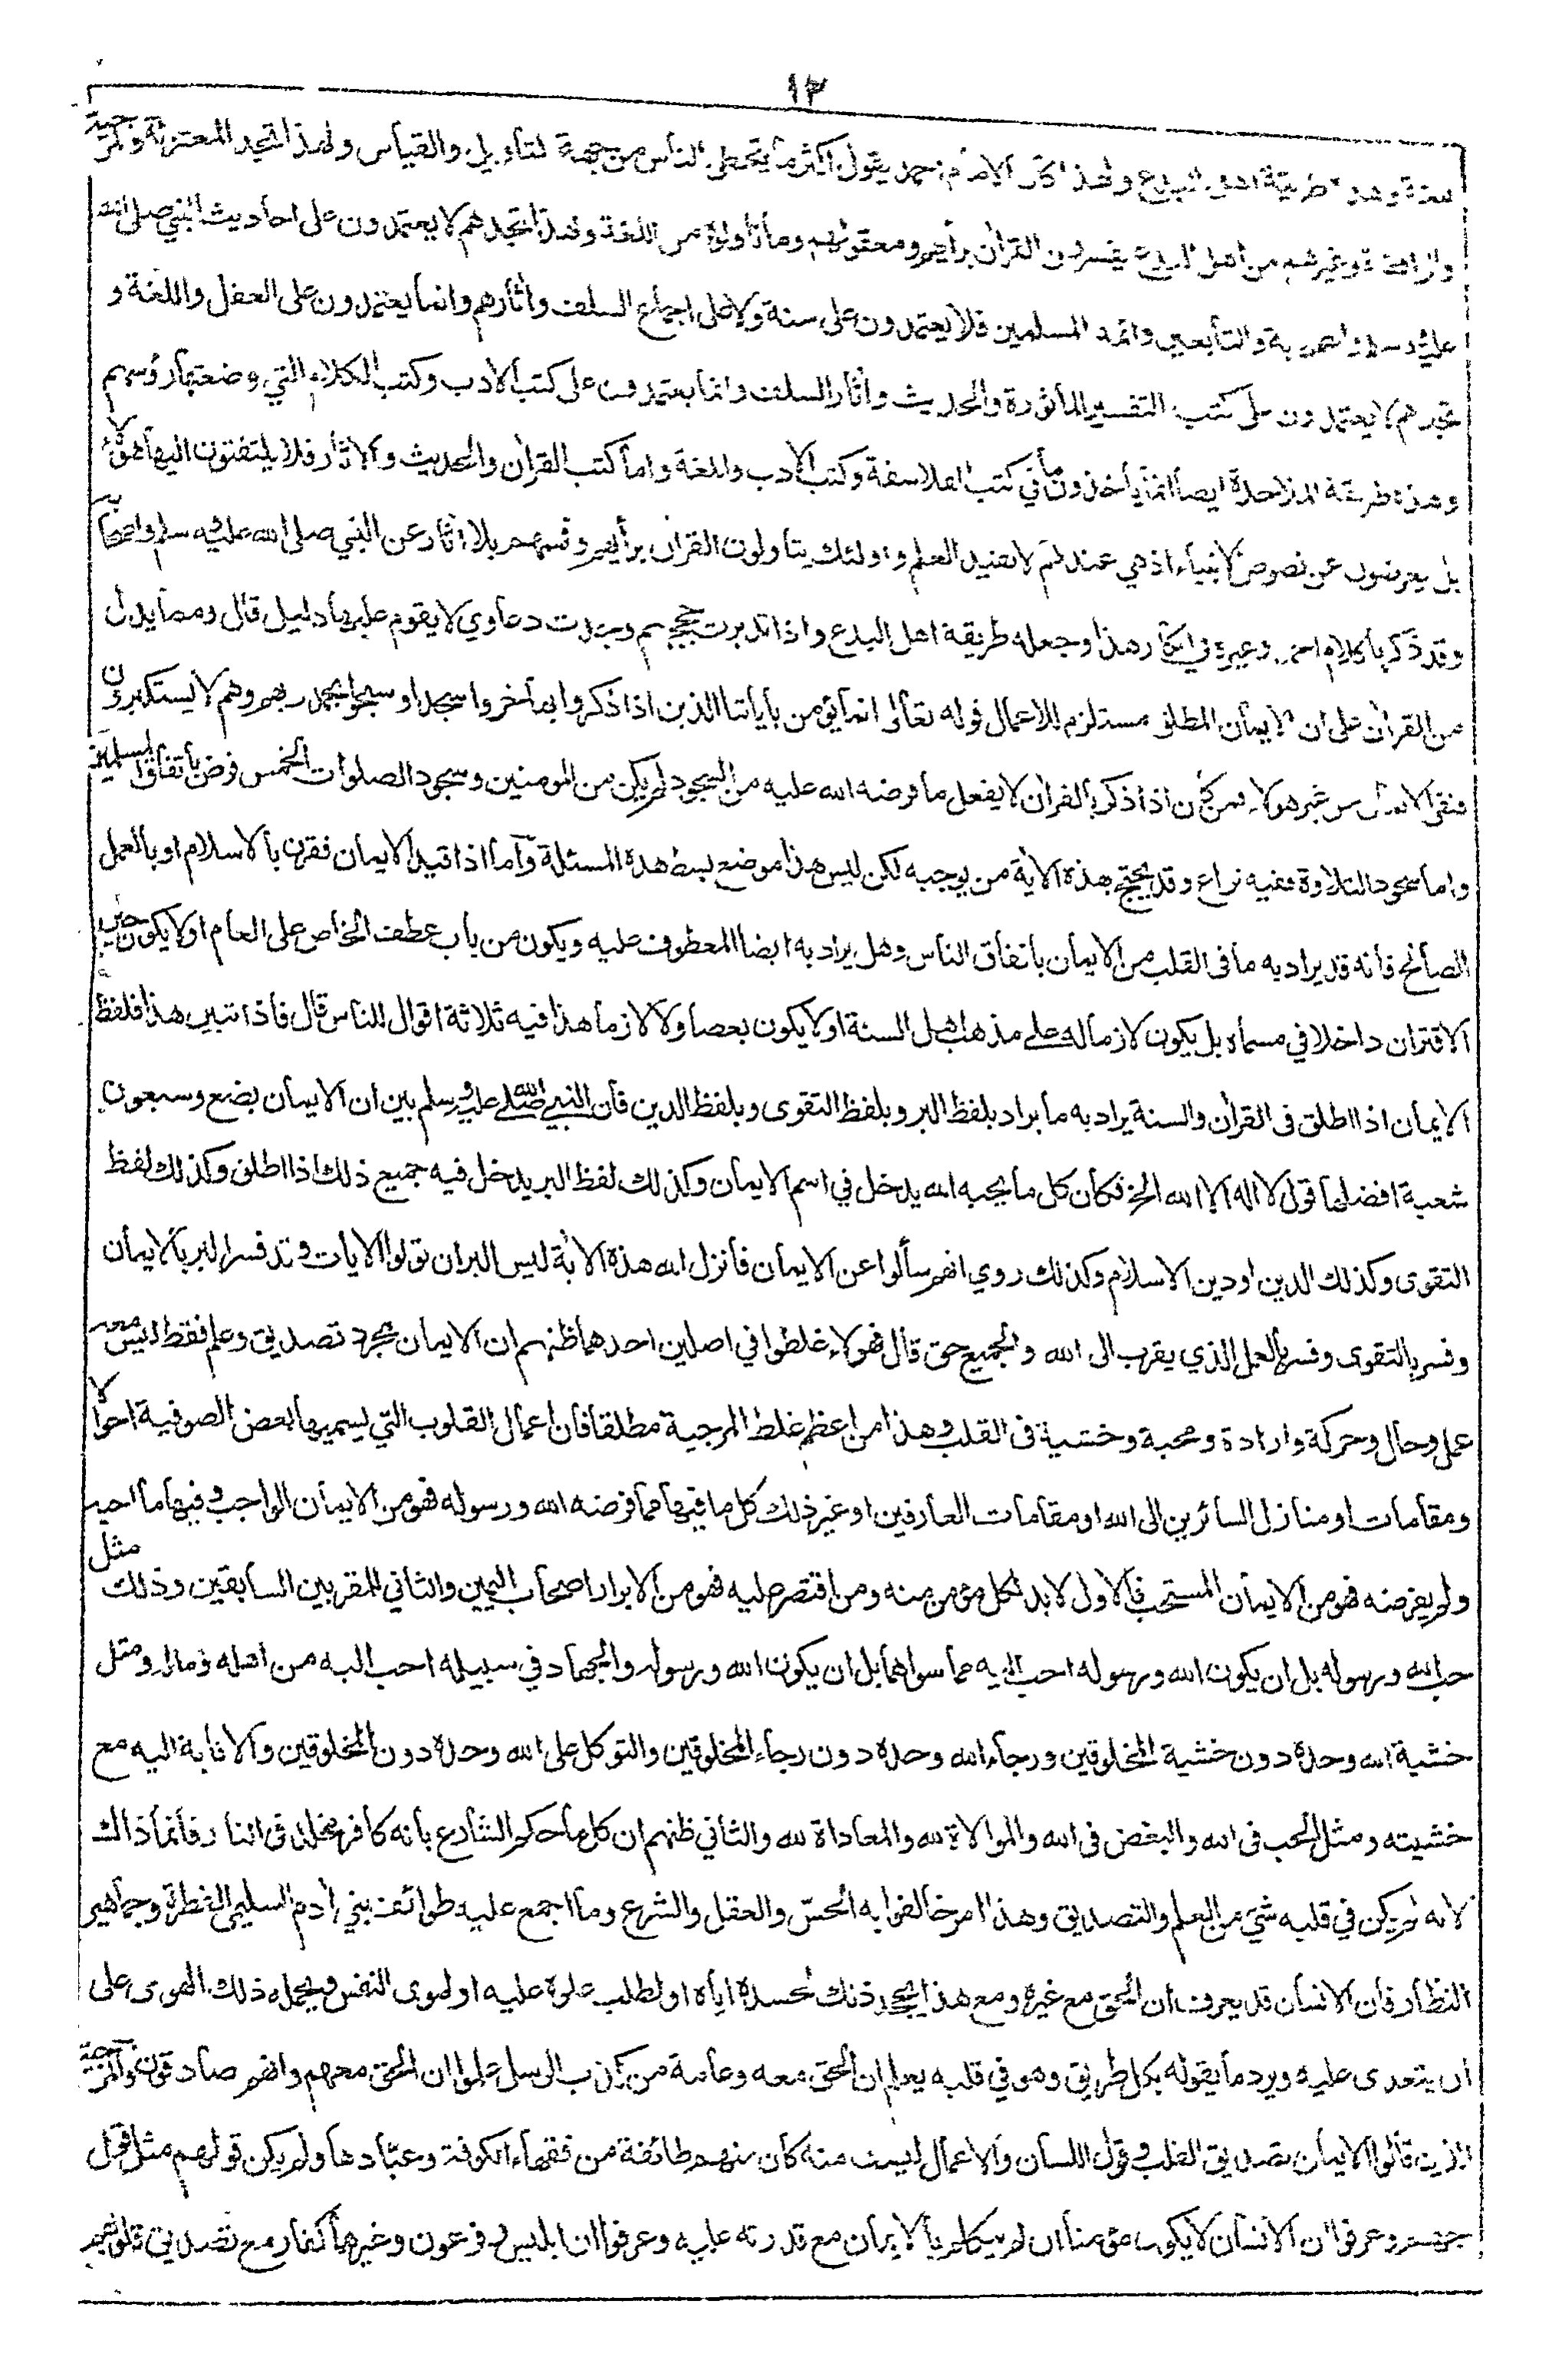 ١٣
لغة وهذه طريقة اهل البدع ولهذا كان الامام احمد يقول اكثر ما يخطى الناس من جهة التأويل والقياس ولهذا تجد المعتزلة والمرجية
والرافضة وغيرهم من اهل البدع يفسرون القرآن برأيهم ومعقولهم وما تأولوه من اللغة ولهذا تجدهم لا يعتمدون على احاديث النبي صلى الله
عليه وسلم والصحابة والتابعين وائمة المسلمين فلا يعتمدون على سنة ولا على اجماع السلف وأثارهم وانما يعتمدون على العقل واللغة و
تجدهم لا يعتمدون على كتب التفسير المأثورة والحديث وأثار السلف وانما يعتمدون على كتب الادب وكتب الكلام التي وضعتها رؤسهم
وهذه طريقة الملاحدة ايضا انما يأخذون ما في كتب الفلاسفة وكتب الادب واللغة واما كتب القرآن والحديث والاثار فلا يلتفتون اليها هؤلاء
بل يعرضون عن نصوص الانبياء اذ هي عندهم لا تفيد العلم واولئك يتأولون القرآن برأيهم وفهمهم بلا اثار عن النبي صلى الله عليه وسلم واصحابه
وقد ذكر باكلام احمد وغيره في انكار هذا وجعله طريقة اهل البدع واذا تدبرت حججهم وجدت دعاوي لا يقوم عليها دليل قال ومما يدل
من القرآن على ان الايمان المطلق مستلزم للاعمال قوله تعالى انما يؤمن بأياتنا الذين اذا ذكروا بها خروا سجدا وسبحوا بحمد ربهم وهم لا يستكبرون
فنفى الايمان من غير هولاء فمن كان اذا ذكر بالقرآن لا يفعل ما فرضه الله عليه من السجود لم يكن من المومنين وسجود الصلوات الخمس فرض باتفاق المسلمين
واما سجود التلاوة ففيه نزاع وقد يحتج بهذه الاية من يوجبه لكن ليس هذا موضع بسط هذه المسئلة وأما اذا قيد الايمان فقرن بالاسلام او بالعمل
الصالح فانه قد يراد به ما في القلب من الايمان باتفاق الناس وهل يراد به ايضا المعطوف عليه ويكون من باب عطف الخاص على العام اولا يكون حين
الاقتران داخلا في مسماه بل يكون لازما له على مذهب اهل السنة اولا يكون بعضا ولا لازما هذا فيه ثلاثة اقوال للناس قال فاذا تبين هذا فلفظ
الايمان اذا اطلق فى القرآن والسنة يراد به ما يراد بلفظ البر وبلفظ التقوى وبلفظ الدين فأن النبي صلى الله عليه وسلم بين ان الايمان بضع وسبعون
شعبة افضلها قول لا اله الا الله الخ فكان كل ما يحبه الله يدخل في اسم الايمان وكذلك لفظ البر يدخل فيه جميع ذلك اذا اطلق وكذلك لفظ
التقوى وكذلك الدين اودين الاسلام وكذلك روي انهم سألوا عن الايمان فأنزل الله هذه الاية ليس البر ان تولوا الايات وقد فسر البر بالايمان
وفسر بالتقوى وفسر بالعمل الذي يقرب الى الله والجميع حق قال فهولاء غلطوا في اصلين احدهما ظنهم ان الايمان مجرد تصديق وعلم فقط ليس معه
عمل وحال وحركة وارادة ومحبة وخشية فى القلب وهذا من اعظم غلط المرجية مطلقا فان اعمال القلوب التي يسميها بعض الصوفية احوالا
ومقامات او منازل السائرين الى الله او مقامات العارفين او غير ذلك كل ما فيها مما فرضه الله ورسوله فهو من الايمان الواجب وفيها ما احبه
ولم يفرضه فهو من الايمان المستحب فالاول لا بد لكل مؤمن منه ومن اقتصر عليه فهو من الابرار اصحاب اليمين والثاني للمقربين السابقين وذلك مثل
حب الله ورسوله بل ان يكون الله ورسوله احب اليه مما سواهما بل ان يكون الله ورسوله والجهاد في سبيله احب اليه من اهله وماله ومثل
خشية الله وحده دون خشية المخلوقين ورجاء الله وحده دون رجاء المخلوقين والتوكل على الله وحده دون المخلوقين والانابة اليه مع
خشيته ومثل الحب فى الله والبغض فى الله والموالاة لله والمعاداة لله والثاني ظنهم ان كل ما حكم الشارع بأنه كافر مخلد فى النار فأنما ذاك
لانه لم يكن في قلبه شي من العلم والتصديق وهذا امر خالفوا به الحسّ والعقل والشرع وما اجمع عليه طوائف بني أدم السليمى الفطرة وجماهير
النظار فأن الانسان قد يعرف ان الحق مع غيره ومع هذا يجحد ذلك لحسده اياه او لطلب علوه عليه او لهوى النفس ويحمله ذلك الهوى على
ان يتعدى عليه ويرد ما يقوله بكل طريق وهو في قلبه يعلم ان الحق معه وعامة من كذب الرسل علموا ان الحق معهم وانهم صادقون والمرجية
الذين قالوا الايمان تصديق القلب وقول اللسان والاعمال ليست منه كان منهم طائفة من فقهاء الكوفة وعبّادها ولم يكن قولهم مثل قول
جهم وعرفوا ان الانسان لا يكون مؤمنا ان لم يتكلم بالايمان مع قدرته عليه وعرفوا ان ابليس وفرعون وغيرهما كفار مع تصديق قلوبهم